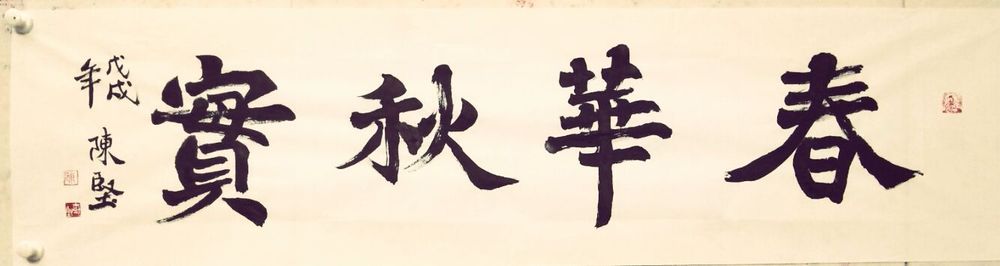 春華秋實
戊戌年
陳堅